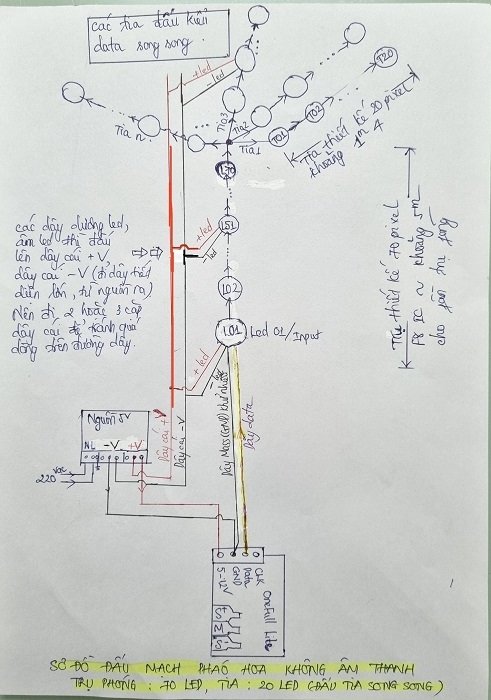 các tia đấu kiểu
data song song.
+led
-led
T20
Tia n
Tia3
Tia2
Tia1
T01
T02
Tia thiết kế 20 pixel
khoảng
1m4
L70
các dây dương led,
âm led thì đấu
lên dây cái +V
dây cái -V (đi dây tiết
diện lớn, từ nguồn ra)
Nên đi 2 hoặc 3 cặp
dây cái để tránh quá
dòng trên đường dây.
+led
-led
L51
L02
L01
Led 01/Input
Trụ thiết kế 70 pixel
F8 IC ~ khoảng 5m
cho phần trụ sống
+led
-led
Nguồn 5V
NL -V +V
220 vac
Dây cái +V
Dây cái -V
Dây Mass(GND) khử nhiễu
Dây data
5-12V
GND
Data
CLK
OneFull Lite
SƠ ĐỒ ĐẤU MẠCH PHÁO HOA KHÔNG ÂM THANH
TRỤ PHÓNG : 70 LED, TIA : 20 LED (ĐẤU TIA SONG SONG)